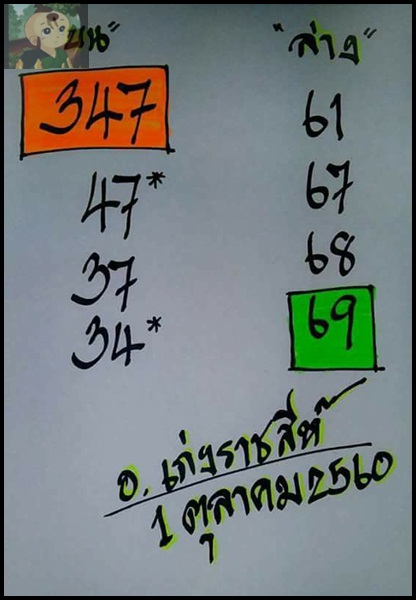 บน" "ล่าง"
347 61
47* 67
37 68
34* 69
อ. เก่งราชสีห์
1 ตุลาคม 2560